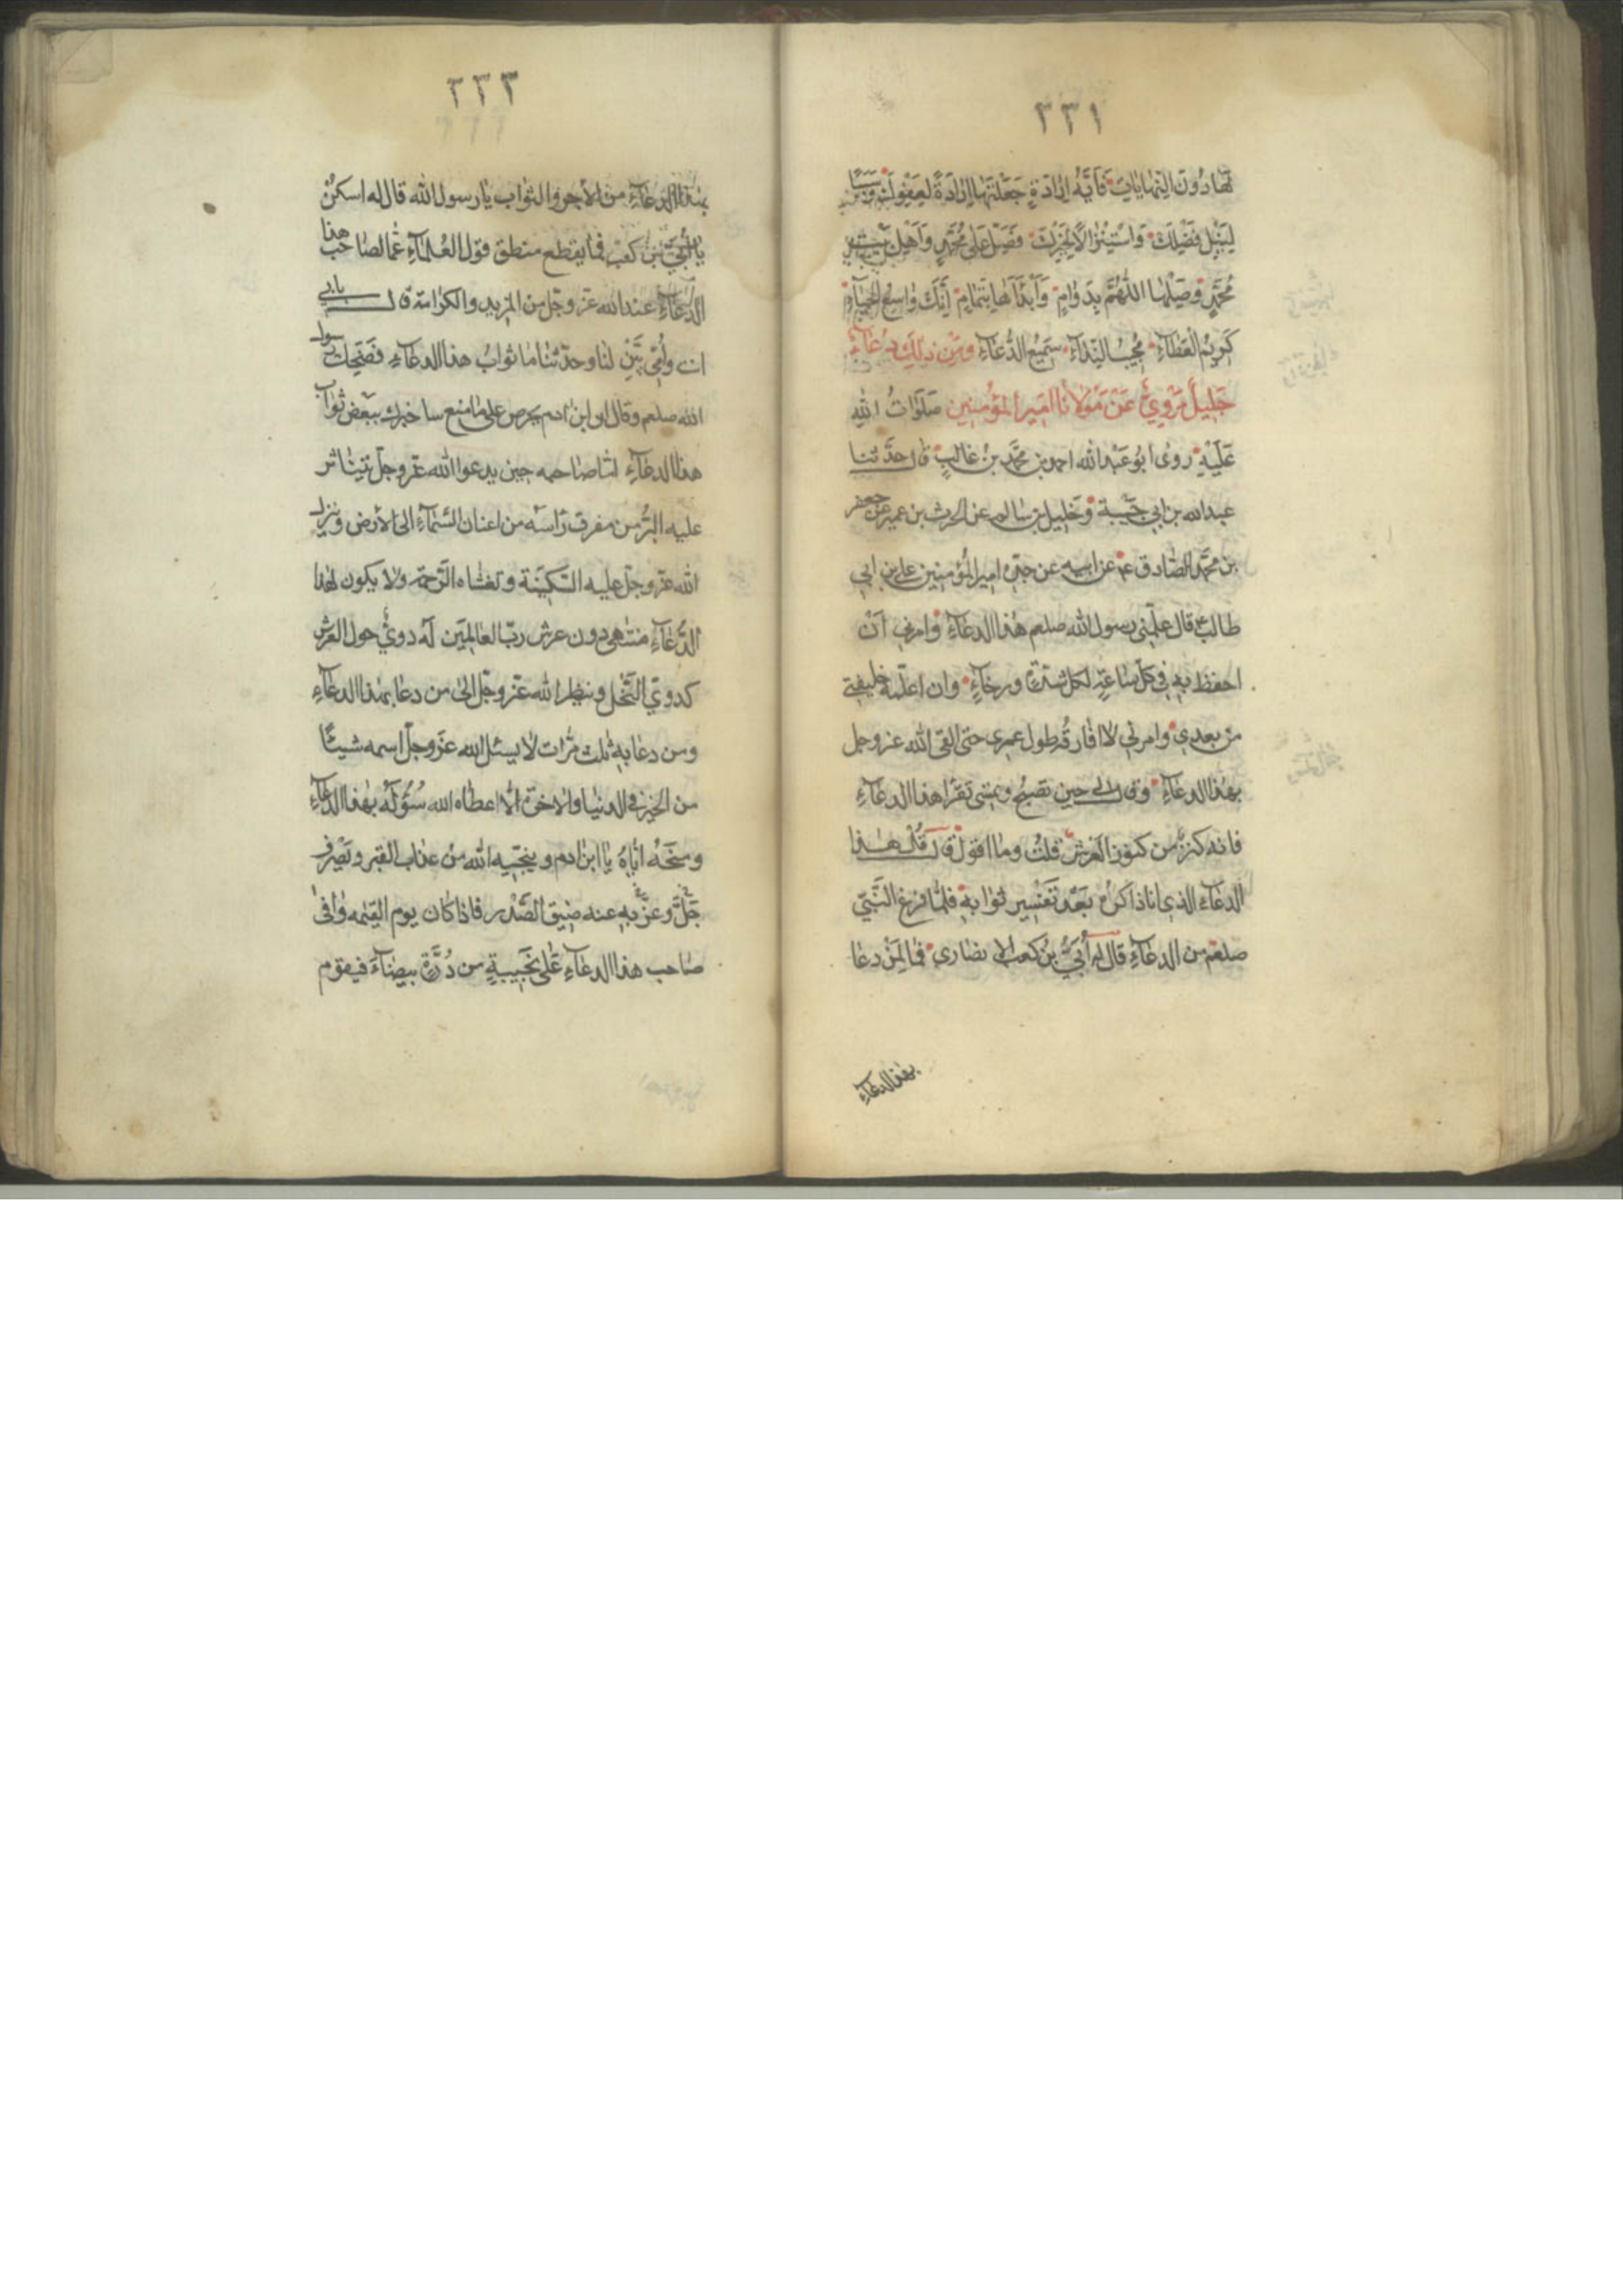 ٣٣١
لها دون النهايات فايّة ارادة جعلتها ارادة لعفوك وسببا
لنيل فضلك واستنزالا لخيرك فصل على محمد واهل بيت
محمد وصلها اللهم بدوام وابدأها بتمام انك واسع الحباء
كريم العطاء مجيب النداء سميع الدعاء ومن ذلك دعاء
جليل مروي عن مولانا امير المؤمنين صلوات الله
عليه روى ابو عبد الله احمد بن محمد بن غالب قال حدثنا
عبد الله بن ابي حبيبة وخليل بن سالم عن الحرث بن عمير عن جعفر
بن محمد الصادق عن ابيه عن جده امير المؤمنين علي بن ابي
طالب قال علمني رسول الله صلعم هذا الدعاء وامرني ان
احفظ به في كل ساعة لكل شدة ورخاء وان اعلمه خليفتي
من بعدي وامرني ان لا افارقه طول عمري حتى القى الله عز وجل
بهذا الدعاء وقال لي حين تصبح وتمسي تقرأ هذا الدعاء
فانه كنز من كنوز العرش قلت وما اقول قال قل هذا
الدعاء الذي انا ذاكره بعد تفسير ثوابه فلما فرغ النبي
صلعم من الدعاء قال له أُبيّ بن كعب الانصاري فما لمن دعا
بهذا الدعاء
٣٣٣
بهذا الدعاء من الأجر والثواب يا رسول الله قال له اسكن
يا أُبيّ بن كعب فما يقطع منطق قول العلماء عما لصاحب هذا
الدعاء عند الله عز وجل من المزيد والكرامة قال بابي
انت وأمّي بيّن لنا وحدثنا ما ثواب هذا الدعاء فضحك رسول
الله صلعم وقال ان ابن ادم يحرص على ما منع ساخبرك ببعض ثواب
هذا الدعاء اما صاحبه حين يدعوا الله عز وجل يتناثر
عليه البرّ من مفرق رأسه من اعنان السماء الى الأرض وينزل
الله عز وجل عليه السكينة وتغشاه الرحمة ولا يكون لهذا
الدعاء منتهى دون عرش رب العالمين له دويّ حول العرش
كدويّ النحل وينظر الله عز وجل الى من دعا بهذا الدعاء
ومن دعا به ثلث مرات لا يسئل الله عز وجل اسمه شيئا
من الخير في الدنيا والاخرة الا اعطاه الله سؤله بهذا الدعاء
ومنحه اياه يا ابن ادم وينجيه الله من عذاب القبر ويصرف
جلّ وعزّ به عنه ضيق الصدر فاذا كان يوم القيمه وافى
صاحب هذا الدعاء على نجيبة من درّة بيضاء فيقوم